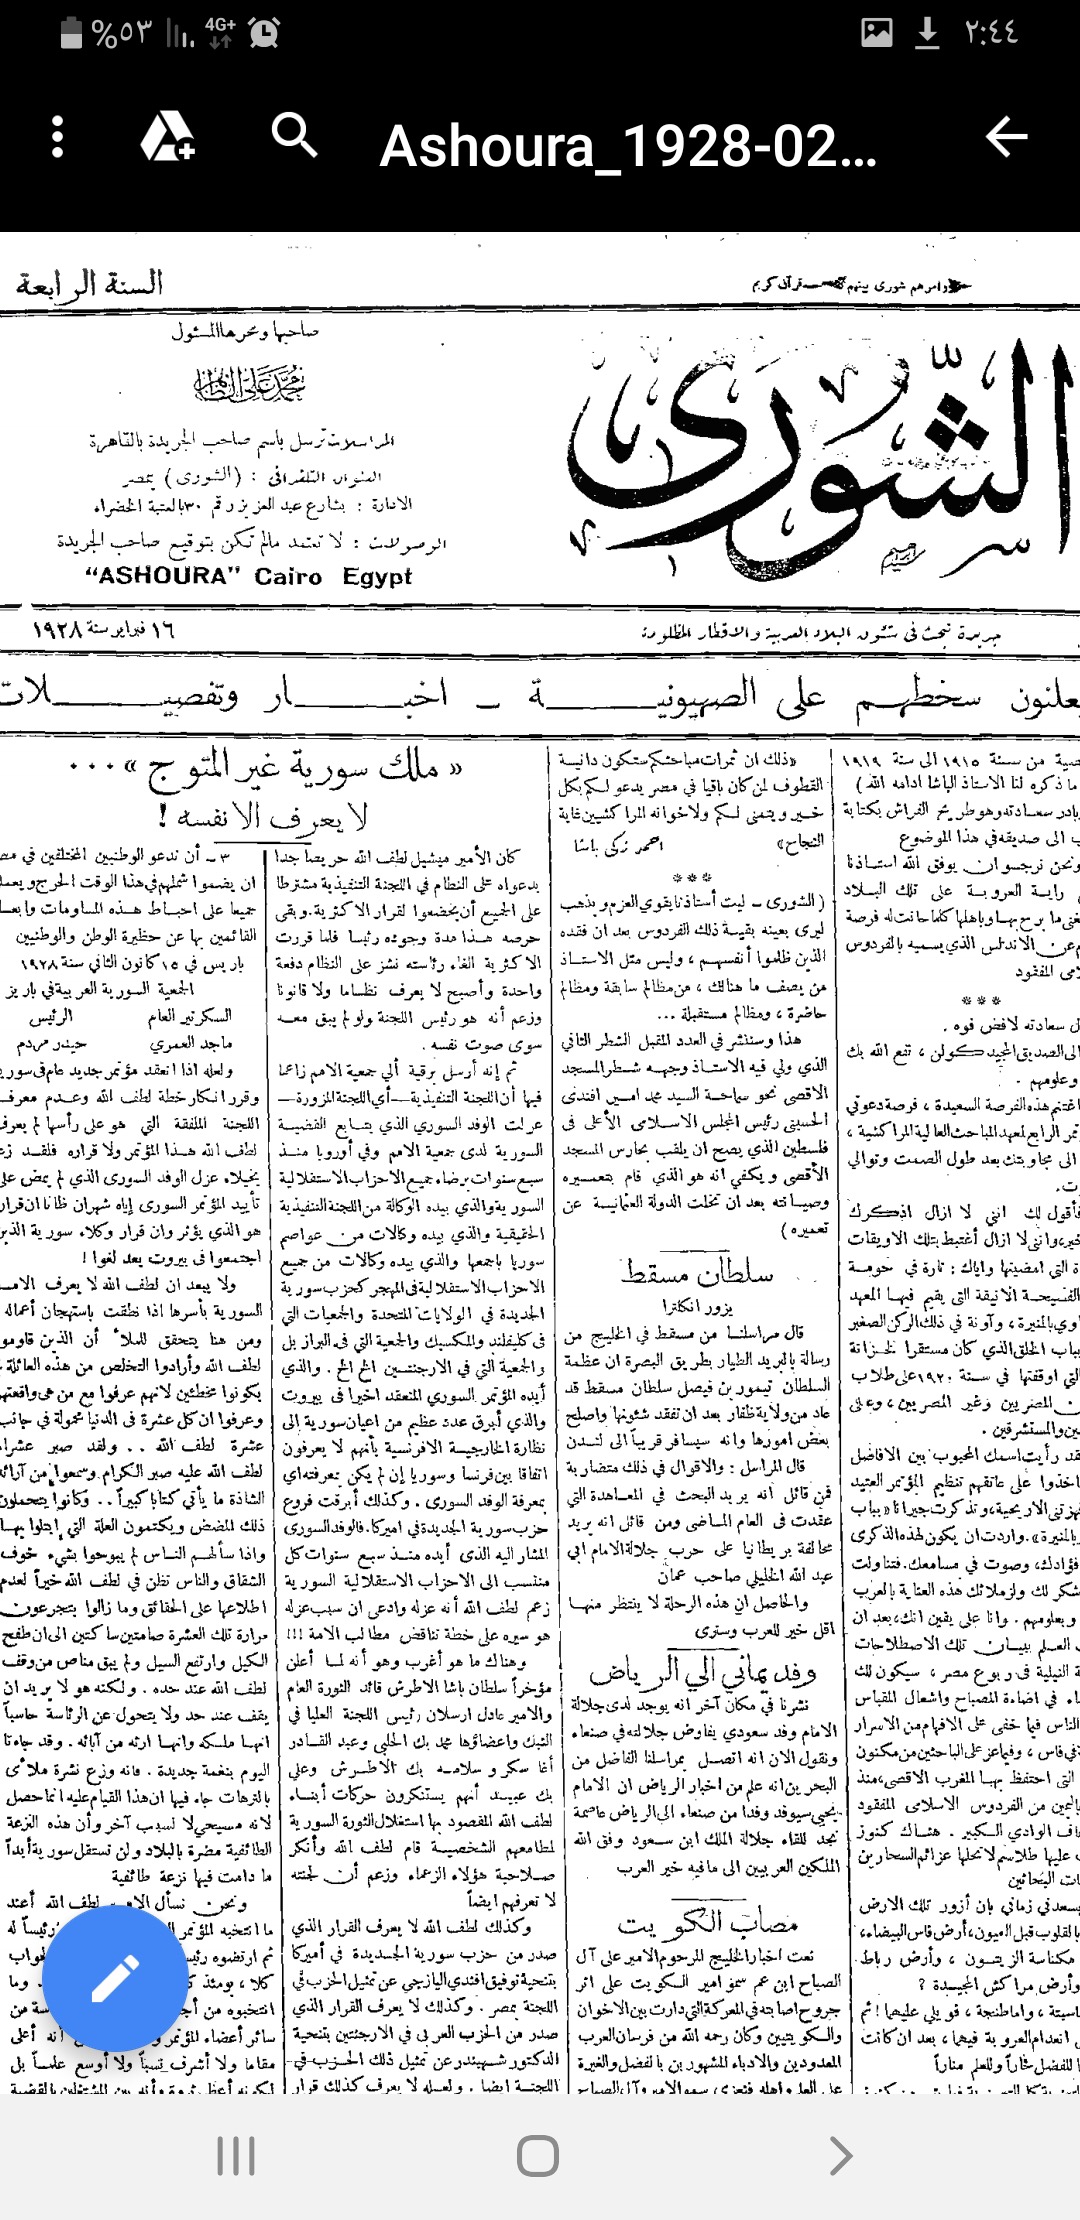 ٢:٤٤
4G+
%٥٣
Ashoura_1928-02...
وامرهم شورى بينهم قرآن كريم
السنة الرابعة
الشورى
صاحبها ومحررها المسئول
محمد علي الطاهر
المراسلات ترسل باسم صاحب الجريدة بالقاهرة
العنوان التلغرافى : (الشورى) بمصر
الادارة : بشارع عبد العزيز رقم ٣٠ بالعتبة الخضراء
الوصولات : لا تعتمد مالم تكن بتوقيع صاحب الجريدة
"ASHOURA" Cairo Egypt
جريدة تبحث فى شئون البلاد العربية والاقطار المظلومة
١٦ فبراير سنة ١٩٢٨
يعلنون سخطهم على الصهيونية - اخبار وتفصيلات
من سنة ١٩١٥ الى سنة ١٩١٩
ما ذكره لنا الاستاذ الباشا ادامه الله)
سعادته وهو طريح الفراش بكتابة
الى صديقه في هذا الموضوع
ونحن نرجو ان يوفق الله استاذنا
راية العروبة على تلك البلاد
عن الاندلس الذي يسميه بالفردوس
المفقود
***
سعادته لافض فوه .
الى الصديق المجيد كولن ، نفع الله بك
وعلومهم .
اغتنم هذه الفرصة السعيدة ، فرصة دعوتي
الرابع لمعهد المباحث العالية المراكشية ،
الى مجاوبتك بعد طول الصمت وتوالي
فأقول لك انني لا ازال اذكرك
ولا ازال أغتبط بتلك الاويقات
التي امضيتها واياك : تارة في حومة
الفسيحة الانيقة التى يقيم فيها المعهد
بالمنيرة ، وآونة في ذلك الركن الصغير
بباب الخلق الذي كان مستقرا لخزانة
التي اوقفتها في سنة ١٩٢٠ على طلاب
المصريين وغير المصريين ، وعلى
والمستشرقين .
رأيت اسمك المحبوب بين الافاضل
اخذوا على عاتقهم تنظيم المؤتمر العتيد
الاريحية ، وتذكرت جيراننا «بباب
بالمنيرة» . واردت ان يكون لهذه الذكرى
فؤادك ، وصوت في مسامعك . فتناولت
لك ولزملائك هذه العناية بالعرب
وبعلومهم . وانا على يقين انك ، بعد ان
العلم ببيان تلك الاصطلاحات
النيلية فى ربوع مصر ، سيكون لك
في اضاءة المصباح واشعال المقباس
الناس فيما خفى على الافهام من الاسرار
فاس ، وفيما عز على الباحثين من مكنون
التى احتفظ بها المغرب الاقصى ، منذ
من الفردوس الاسلامى المفقود
الوادي الكبير . هناك كنوز
عليها طلاسم لا تحلها عزائم السحار بن
البحاثين
في زمانى بان أزور تلك الارض
بالقلوب قبل العيون ، أرض فاس البيضاء ،
مكناسة الزيتون ، وأرض رباط
وأرض مراكش المجيدة ؟
وطنجة ، فويلى عليهما ! ثم
انعدام العروبة فيهما ، بعد ان كانت
للفضل مناراً وللعلم مناراً
«ذلك ان ثمرات مباحثكم ستكون دانية
القطوف لمن كان باقيا في مصر يدعو لكم بكل
خير ويتمنى لكم ولاخوانه المراكشيين غاية
النجاح» احمد زكى باشا
***
(الشورى - ليت أستاذنا يقوي العزم ويذهب
ليرى بعينه بقية ذلك الفردوس بعد ان فقده
الذين ظلموا أنفسهم ، وليس مثل الاستاذ
من يصف ما هنالك ، من مظالم سابقة ومظالم
حاضرة ، ومظالم مستقبلة ...
هذا وسننشر في العدد المقبل الشطر الثاني
الذي ولى فيه الاستاذ وجهه شطر المسجد
الاقصى نحو سماحة السيد محمد امين افندى
الحسينى رئيس المجلس الاسلامى الأعلى فى
فلسطين الذي يصح ان يلقب بحارس المسجد
الأقصى ويكفي انه هو الذي قام بتعميره
وصيانته بعد ان تخلت الدولة العثمانية عن
تعميره)
سلطان مسقط
يزور انكلترا
قال مراسلنا من مسقط في الخليج من
رسالة بالبريد الطيار بطريق البصرة ان عظمة
السلطان تيمور بن فيصل سلطان مسقط قد
عاد من ولاية ظفار بعد ان تفقد شئونها واصلح
بعض امورها وانه سيسافر قريباً الى لندن
قال المراسل : والاقوال في ذلك متضاربة
فمن قائل انه يريد البحث في المعاهدة التي
عقدت فى العام الماضى ومن قائل انه يريد
محالفة بريطانيا على حرب جلالة الامام ابي
عبد الله الخليلي صاحب عمان
والحاصل ان هذه الرحلة لا ينتظر منها
اقل خير للعرب وسترى
وفد يماني الى الرياض
نشرنا في مكان آخر انه يوجد لدى جلالة
الامام وفد سعودي يفاوض جلالته في صنعاء
ونقول الان انه اتصل بمراسلنا الفاضل من
البحرين انه علم من اخبار الرياض ان الامام
يحيى سيوفد وفدا من صنعاء الى الرياض عاصمة
نجد للقاء جلالة الملك ابن سعود وفق الله
الملكين العربيين الى ما فيه خير العرب
مصاب الكويت
نعت اخبار الخليج المرحوم الامير على آل
الصباح ابن عم سمو امير الكويت على اثر
جروح اصابته في المعركة التي دارت بين الاخوان
والكويتيين وكان رحمه الله من فرسان العرب
المعدودين والادباء المشهورين بالفضل والغيرة
على العلم واهله فنعزى سمو الامير وآل الصباح
« ملك سورية غير المتوج » ...
لا يعرف الا نفسه !
كان الأمير ميشيل لطف الله حريصا جدا
بدعواه على النظام في اللجنة التنفيذية مشترطا
على الجميع أن يخضعوا لقرار الاكثرية . وبقى
حرصه هذا مدة وجوده رئيسا فلما قررت
الاكثرية الغاء رئاسته نشز على النظام دفعة
واحدة وأصبح لا يعرف نظاما ولا قانونا
وزعم أنه هو رئيس اللجنة ولو لم يبق معه
سوى صوت نفسه .
ثم إنه أرسل برقية الى جمعية الامم زاعما
فيها أن اللجنة التنفيذية - أي اللجنة المزورة -
عزلت الوفد السوري الذي يتابع القضية
السورية لدى جمعية الامم وفي أوروبا منذ
سبع سنوات برضاء جميع الاحزاب الاستقلالية
السورية والذي بيده الوكالة من اللجنة التنفيذية
الحقيقية والذي بيده وكالات من عواصم
سوريا باجمعها والذي بيده وكالات من جميع
الاحزاب الاستقلالية فى المهجر كحزب سورية
الجديدة في الولايات المتحدة والجمعيات التي
فى كليفلند والمكسيك والجمعية التي فى البرازيل
والجمعية التي في الارجنتين الخ الخ . والذي
أيده المؤتمر السوري المنعقد اخيرا فى بيروت
والذي أبرق عدد عظيم من اعيان سورية الى
نظارة الخارجية الافرنسية بأنهم لا يعرفون
اتفاقا بين فرنسا وسوريا إن لم يكن بمعرفته اي
بمعرفة الوفد السورى . وكذلك أبرقت فروع
حزب سورية الجديدة في اميركا . فالوفد السورى
المشار اليه الذى أيده منذ سبع سنوات كل
منتسب الى الاحزاب الاستقلالية السورية
زعم لطف الله أنه عزله وادعى ان سبب عزله
هو سيره على خطة تناقض مطالب الامة !!!
وهناك ما هو أغرب وهو أنه لما أعلن
مؤخراً سلطان باشا الاطرش قائد الثورة العام
والامير عادل ارسلان رئيس اللجنة العليا في
النبك واعضاؤها محمد بك الحلبي وعبد القادر
أغا سكر وسلامه بك الاطرش وعلي
بك عبيد أنهم يستنكرون حركات أبناء
لطف الله المقصود بها استغلال الثورة السورية
لمطامعهم الشخصية قام لطف الله وأنكر
صلاحية هؤلاء الزعماء وزعم أن لجنته
لا تعرفهم ايضاً
وكذلك لطف الله لا يعرف القرار الذي
صدر من حزب سورية الجديدة في أميركا
بتنحية توفيق افندي اليازجي عن تمثيل الحزب فى
اللجنة بمصر . وكذلك لا يعرف القرار الذي
صدر من الحزب العربى في الارجنتين بتنحية
الدكتور شهبندر عن تمثيل ذلك الحزب في
اللجنة ايضا . ولعله لا يعرف كذلك قرار
٣ - أن ندعو الوطنيين المختلفين في مصر
ان يضموا شملهم في هذا الوقت الحرج
جميعا على احباط هذه المساومات
القائمين بها عن حظيرة الوطن والوطنيين
باريس في ١٥ كانون الثانى سنة ١٩٢٨
الجمعية السورية العربية في باريز
السكرتير العام الرئيس
ماجد العمري حيدر مردم
ولعله اذا انعقد مؤتمر جديد عام في سورية
وقرر انكار خطة لطف الله وعدم
اللجنة الملفقة التي هو على رأسها لم يعرف
لطف الله هذا المؤتمر ولا قراره فلقد
بخيلاء عزل الوفد السورى الذي لم يمض على
تأييد المؤتمر السورى إياه شهران ظانا ان
هو الذي يؤثر وان قرار وكلاء سورية الذين
اجتمعوا فى بيروت يعد لغوا !
ولا يبعد ان لطف الله لا يعرف
السورية بأسرها اذا نطقت باستهجان أعماله
ومن هنا يتحقق للملأ أن الذين قاوموا
لطف الله وأرادوا التخلص من هذه العائلة
يكونوا مخطئين لانهم عرفوا مع من هي
وعرفوا ان كل عشرة فى الدنيا محمولة في جانب
عشرة لطف الله .. ولقد صبر
لطف الله عليه صبر الكرام وسمعوا من آرائه
الشاذة ما يأتي كتابا كبيراً .. وكانوا يتحملون
ذلك المضض ويكتمون العلة التي ابتلوا بها
واذا سألهم الناس لم يبوحوا بشيء خوف
الشقاق والناس تظن في لطف الله خيراً لعدم
اطلاعها على الحقائق وما زالوا يتجرعون
مرارة تلك العشرة صامتين ساكتين الى ان طفح
الكيل وارتفع السيل ولم يبق مناص من وقف
لطف الله عند حده . ولكنه هو لا يريد ان
يقف عند حد ولا يتحول عن الرئاسة حاسباً
انها ملكه وانها ارثه من آبائه . وقد جاءنا
اليوم بنغمة جديدة . فانه وزع نشرة ملأى
بالترهات جاء فيها ان هذا القيام عليه انما حصل
لانه مسيحي لا لسبب آخر وأن هذه النزعة
الطائفية مضرة بالبلاد ولن تستقل سورية أبداً
ما دامت فيها نزعة طائفية
ونحن نسأل لطف الله أعند
ما انتخبه المؤتمر رئيساً له
ثم ارتضوه
كلا ، يومئذ وما
انتخبوه من
سائر أعضاء أنه أعلى
مقاما ولا أشرف نسباً ولا أوسع علماً بل
لكونه أعظم ثروة وأنه بين المشتغلين بالقضية